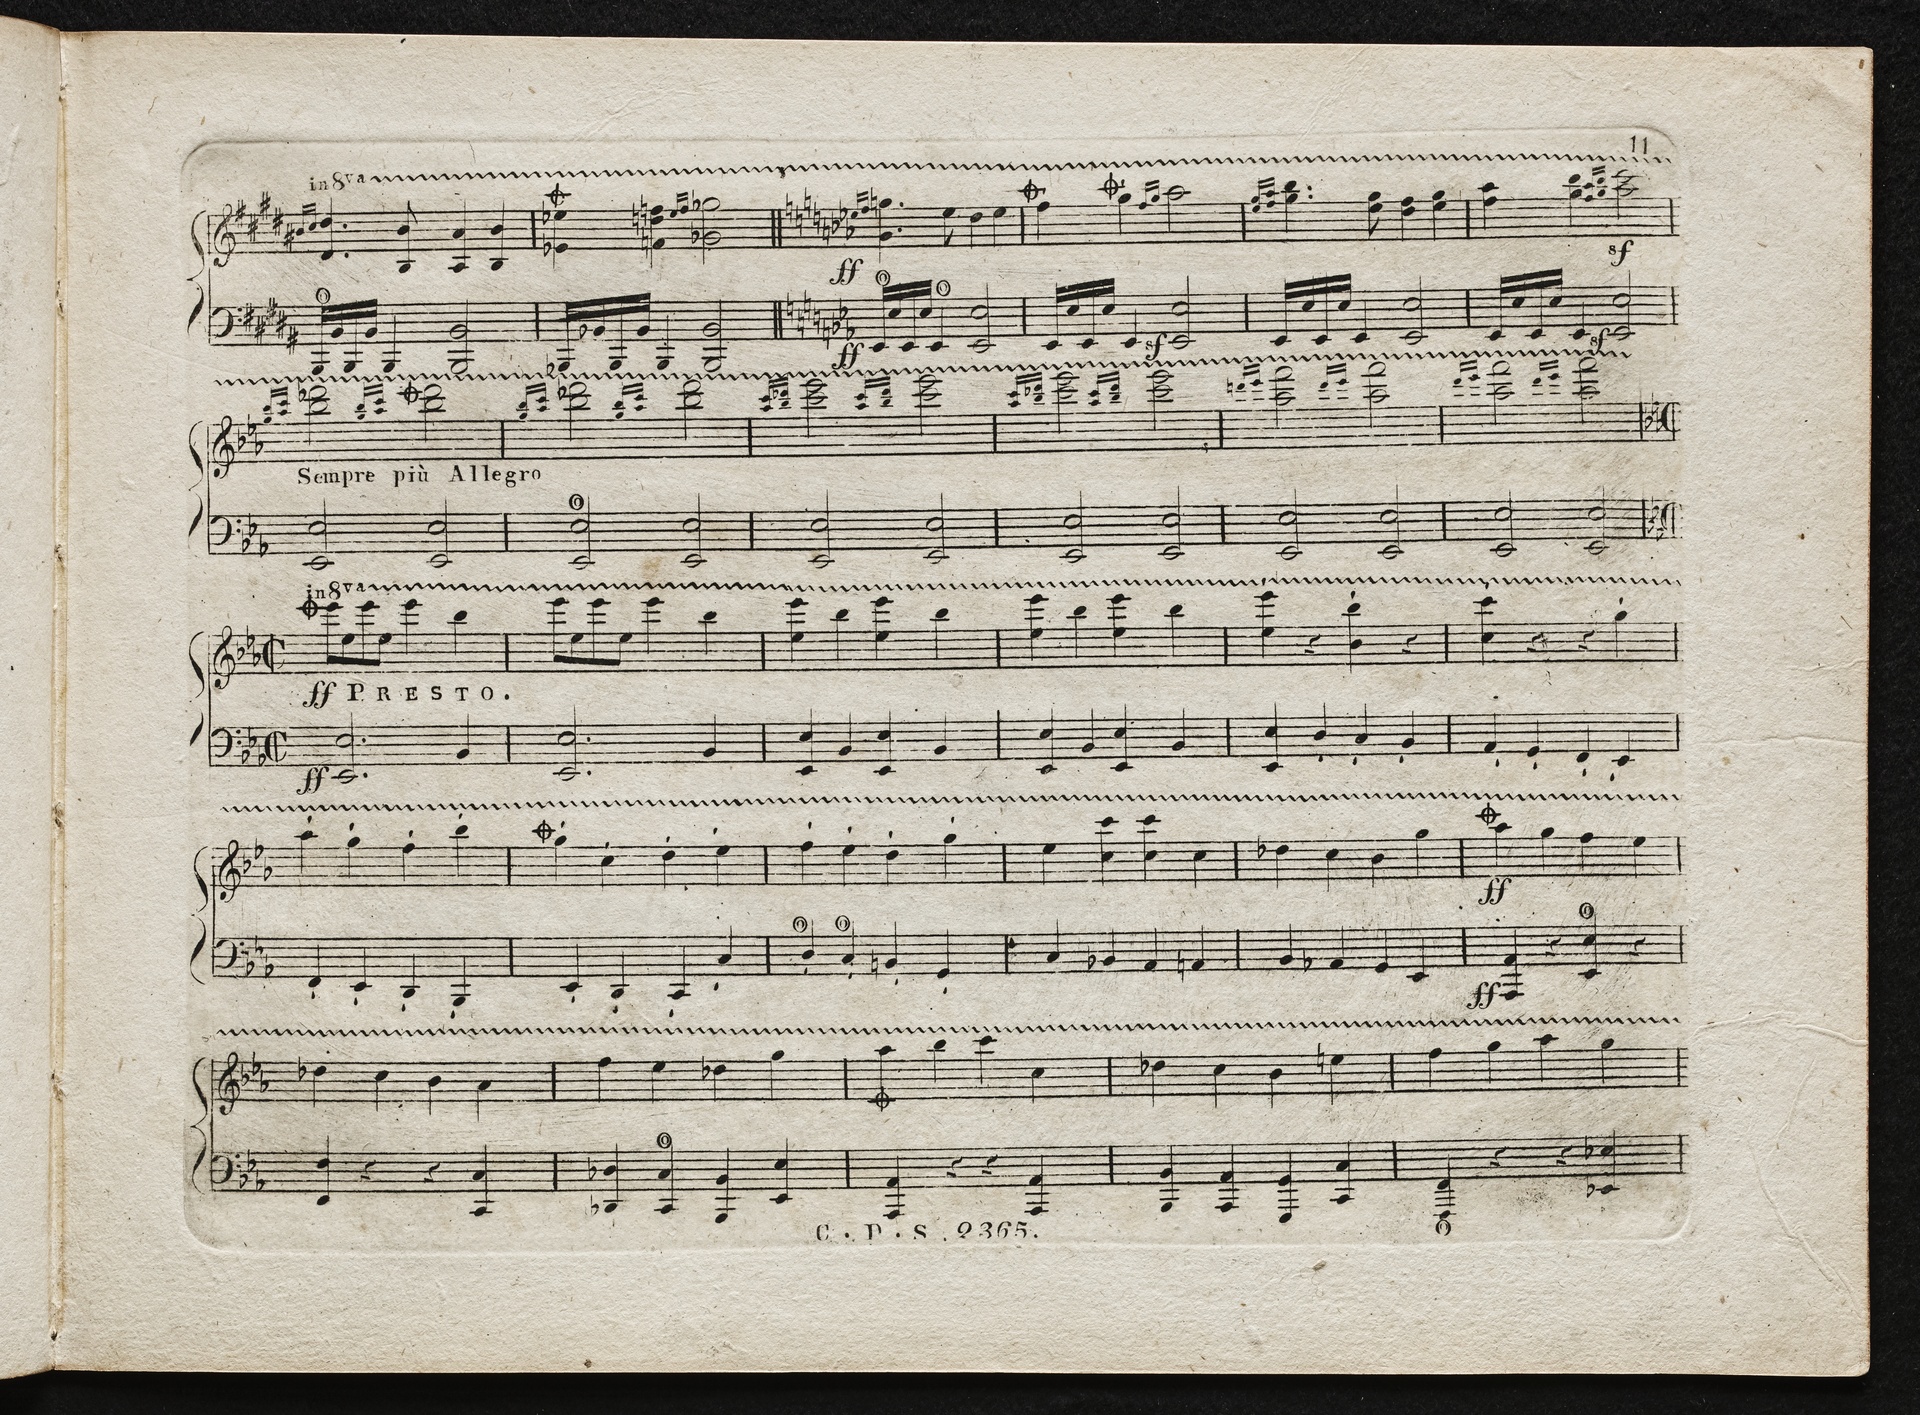 11
in 8va
ff
sf
ff
sf
sf
Sempre più Allegro
in 8va
ff PRESTO.
ff
ff
ff
C. P. S. 2365.